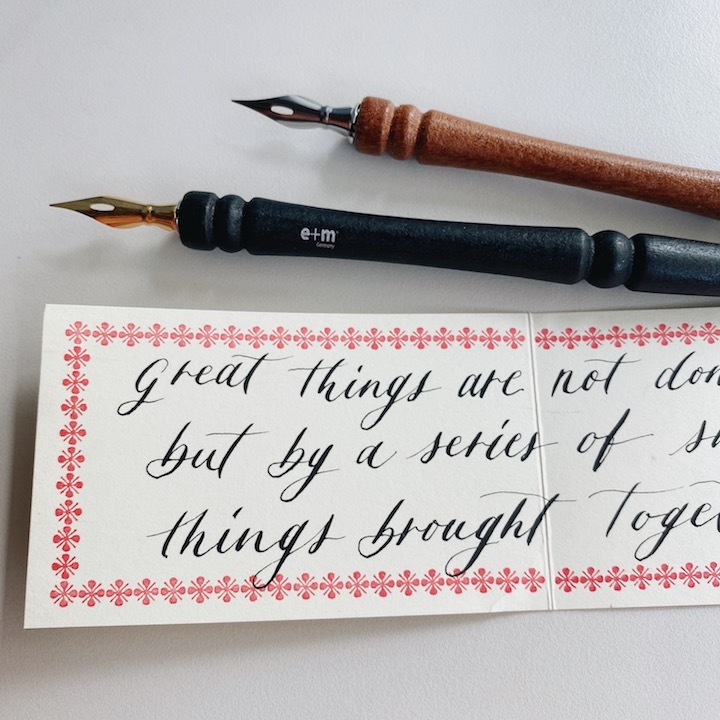 e+m
Germany
great things are not don
but by a series of sm
things brought toget